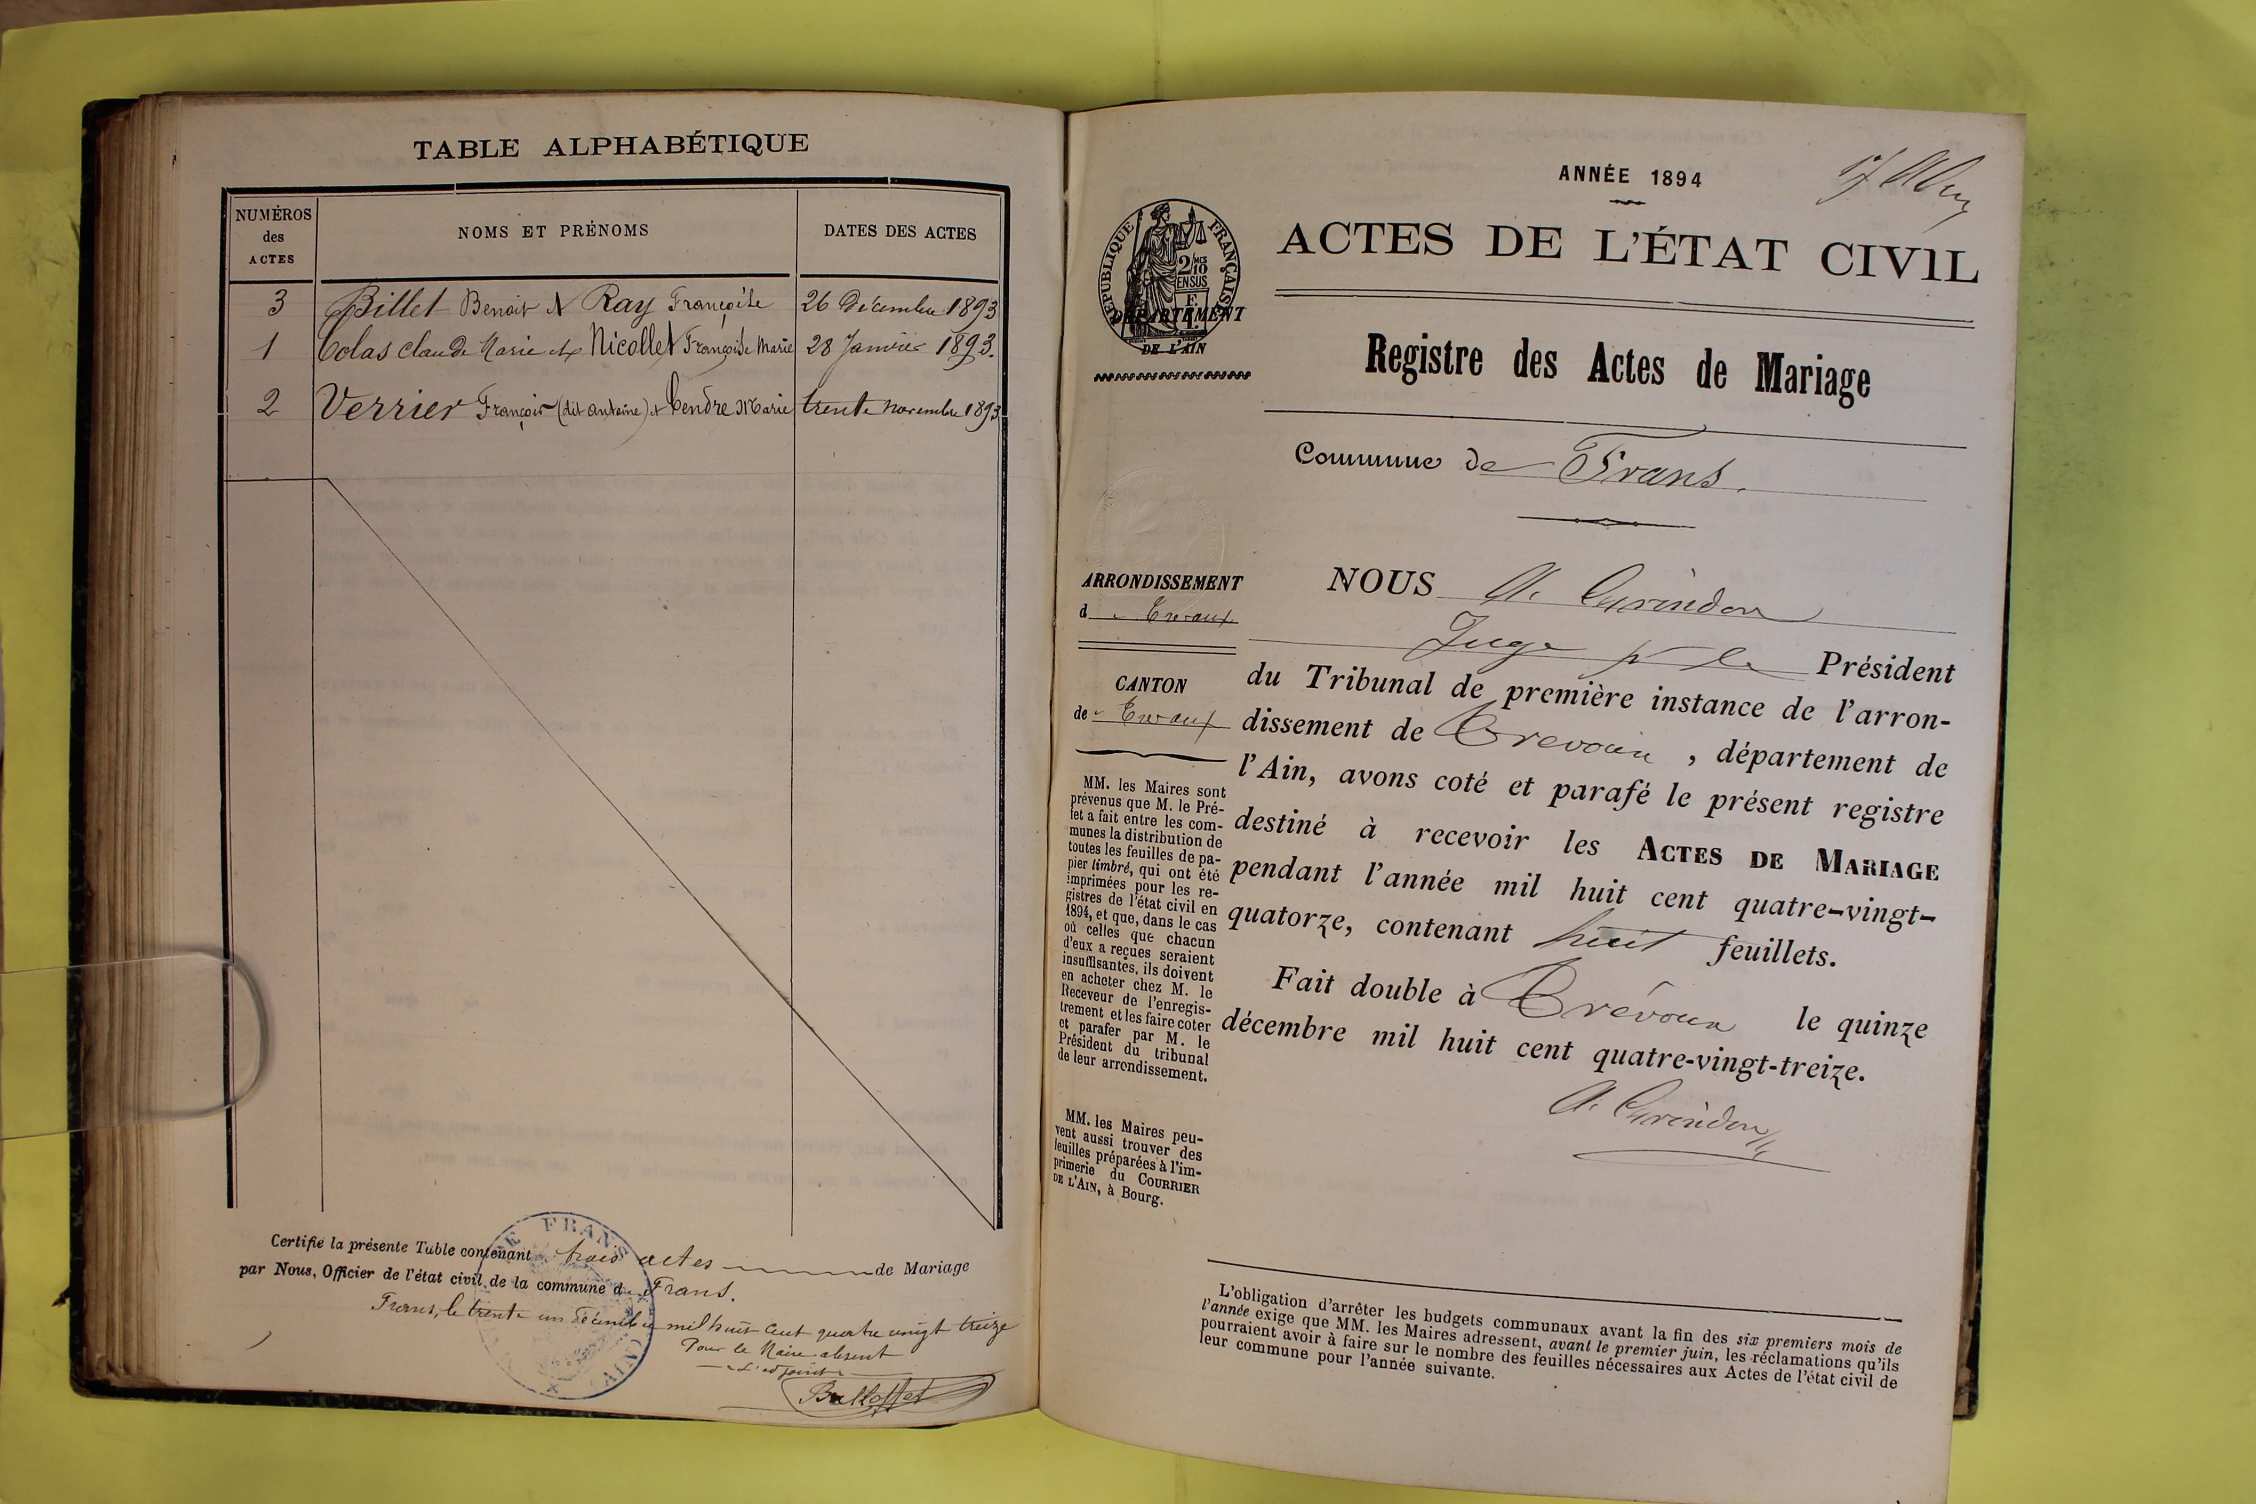 TABLE ALPHABÉTIQUE
NUMÉROS
des
ACTES
NOMS ET PRÉNOMS
DATES DES ACTES
3 Billet Benoit et Ray Françoise 26 Décembre 1893
1 Colas Claude Marie et Nicollet Françoise Marie 28 Janvier 1893.
2 Verrier François (dit Antoine) et Cendre Marie trente novembre 1893
Certifié la présente Table contenant trois actes de Mariage
par Nous, Officier de l'état civil de la commune de Frans.
Frans, le trente un Décembre mil huit Cent quatre vingt treize
Pour le Maire absent
L'adjoint
Balloffet
FRANS
(AIN)
ANNÉE 1894
RÉPUBLIQUE FRANÇAISE
2/10
EN SUS
DÉPARTEMENT
DE L'AIN
ACTES DE L'ÉTAT CIVIL
Registre des Actes de Mariage
Commune de Frans.
ARRONDISSEMENT
d Trevoux
CANTON
de Trevoux
MM. les Maires sont
prévenus que M. le Pré-
fet a fait entre les com-
munes la distribution de
toutes les feuilles de pa-
pier timbré, qui ont été
imprimées pour les re-
gistres de l'état civil en
1894, et que, dans le cas
où celles que chacun
d'eux a reçues seraient
insuffisantes, ils doivent
en acheter chez M. le
Receveur de l'enregis-
trement et les faire coter
et parafer par M. le
Président du tribunal
de leur arrondissement.
MM. les Maires peu-
vent aussi trouver des
feuilles préparées à l'im-
primerie du COURRIER
DE L'AIN, à Bourg.
NOUS A.
Juge pr le Président
du Tribunal de première instance de l'arron-
dissement de Trevoux, département de
l'Ain, avons coté et parafé le présent registre
destiné à recevoir les ACTES DE MARIAGE
pendant l'année mil huit cent quatre-vingt-
quatorze, contenant huit feuillets.
Fait double à Trévoux le quinze
décembre mil huit cent quatre-vingt-treize.
L'obligation d'arrêter les budgets communaux avant la fin des six premiers mois de
l'année exige que MM. les Maires adressent, avant le premier juin, les réclamations qu'ils
pourraient avoir à faire sur le nombre des feuilles nécessaires aux Actes de l'état civil de
leur commune pour l'année suivante.